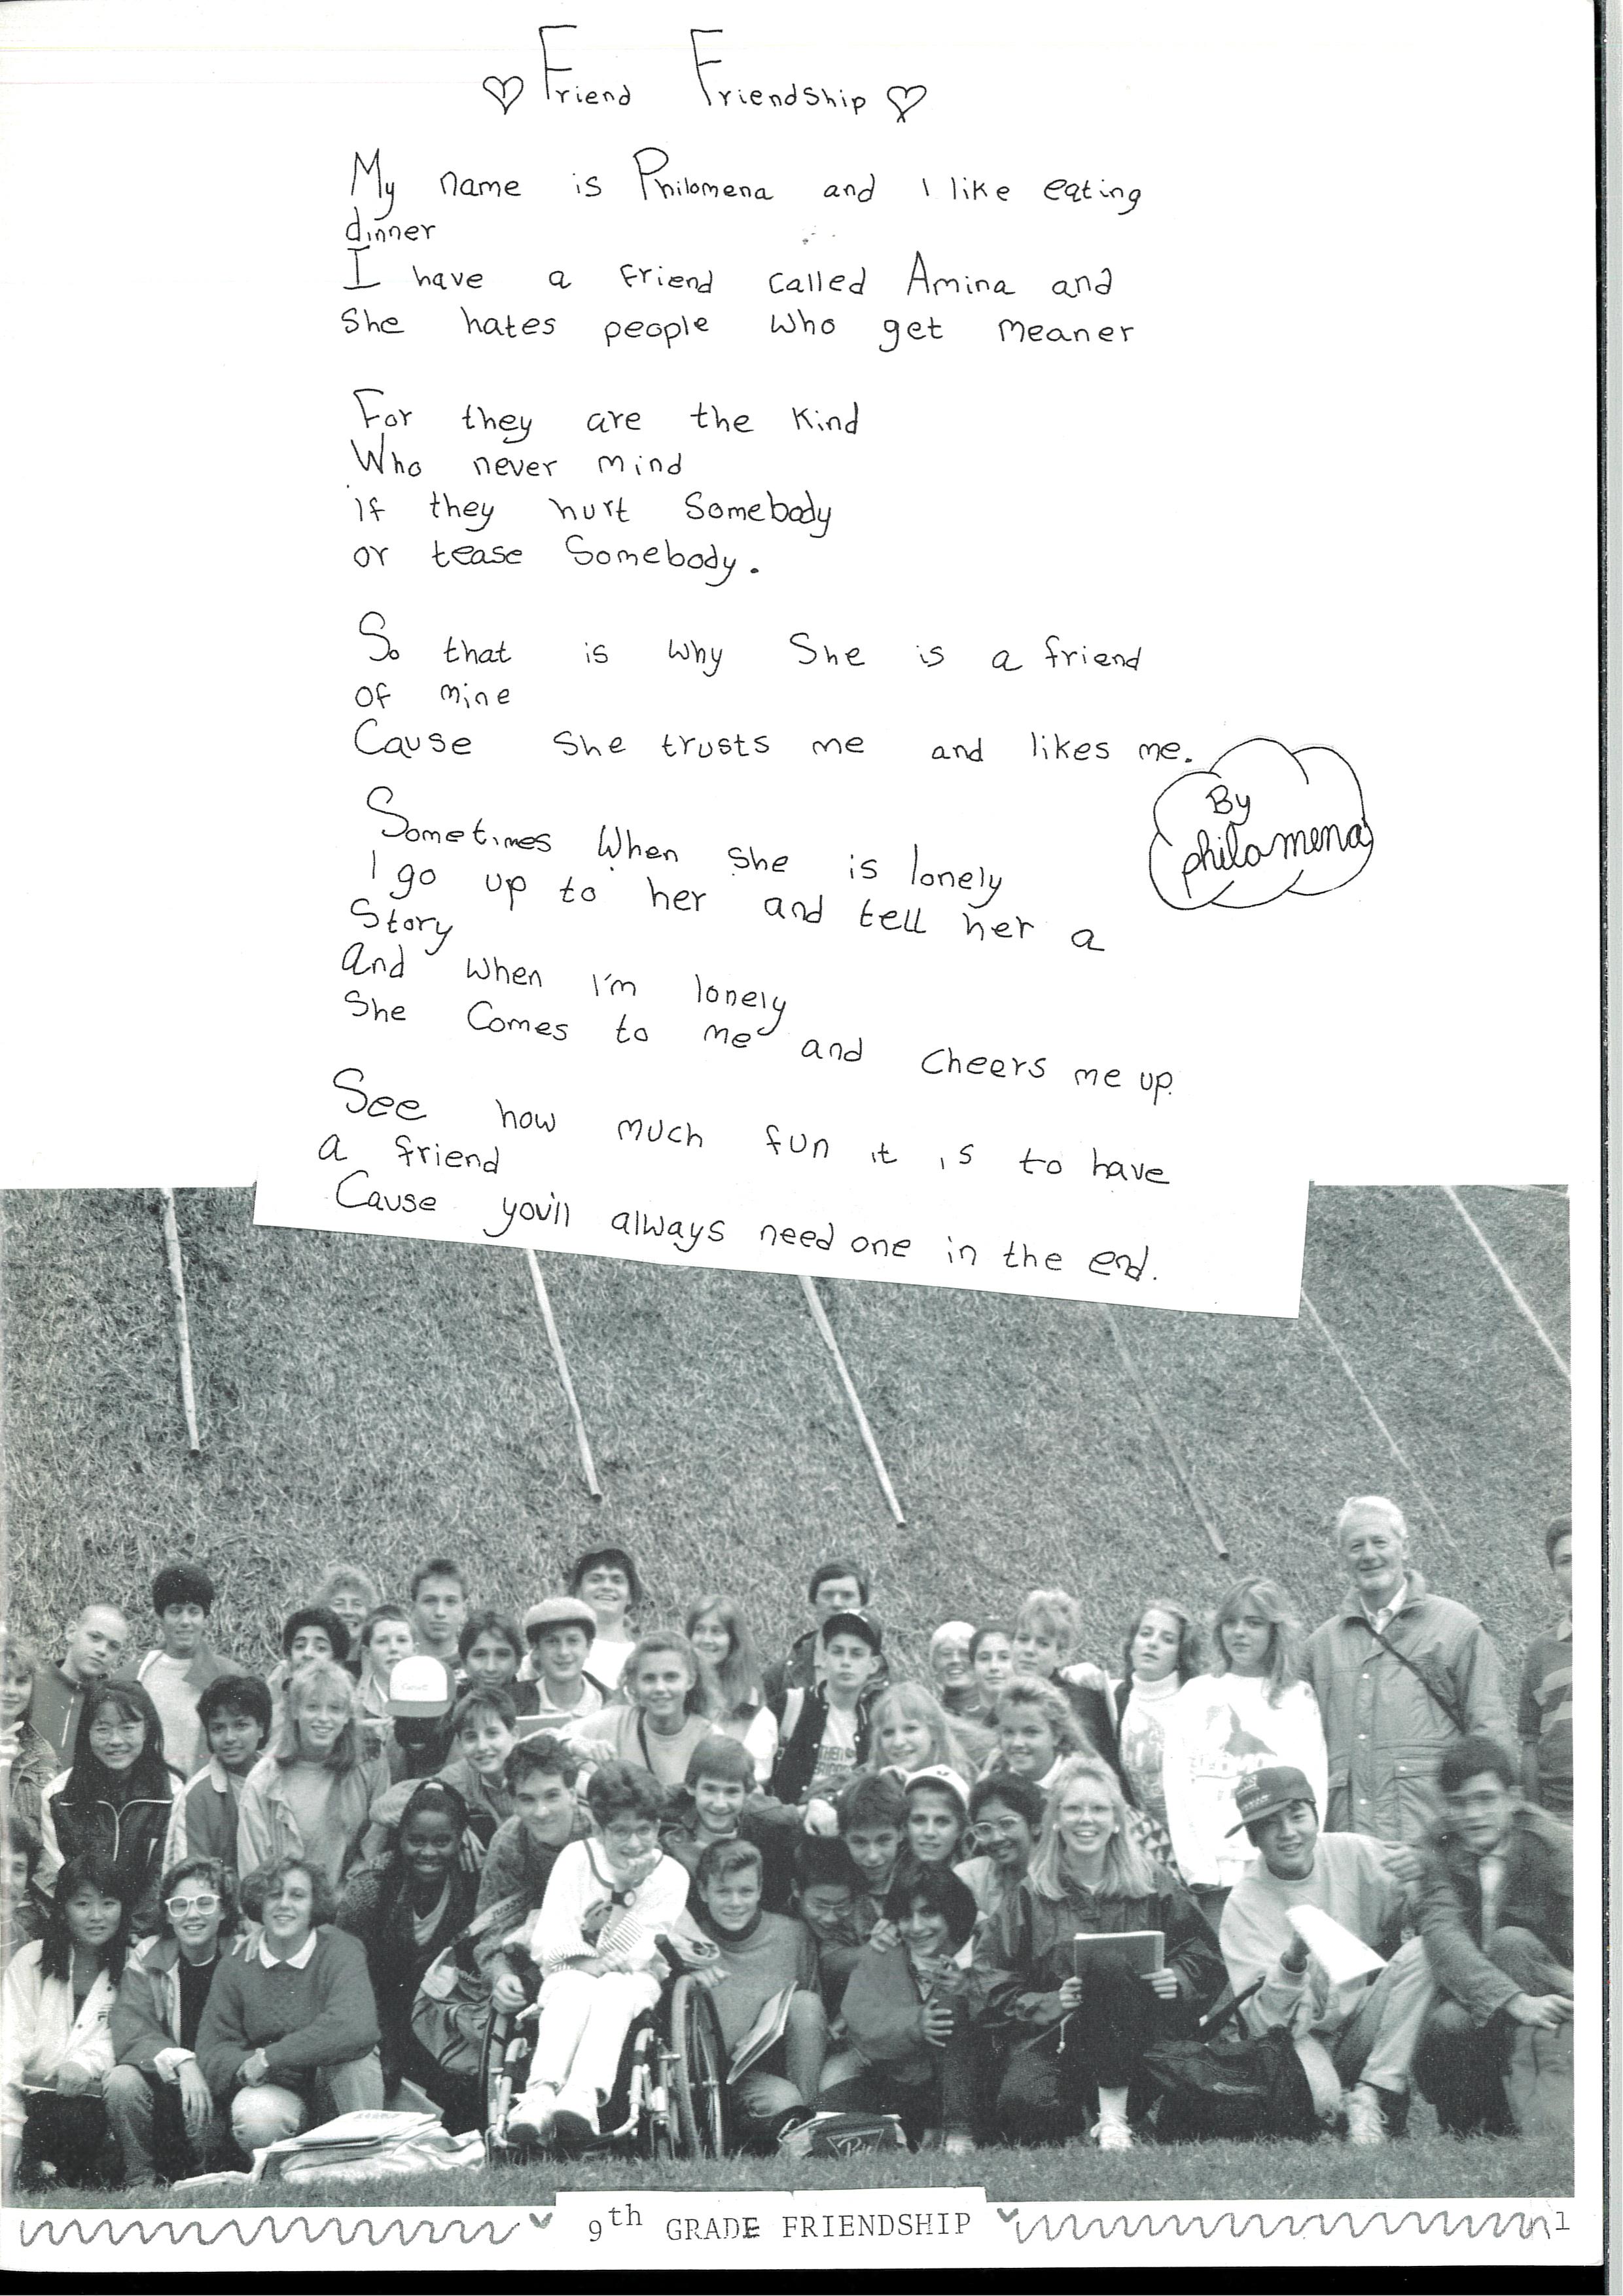 Friend Friendship
My name is Philomena and I like eating
dinner
I have a friend called Amina and
She hates people who get meaner
For they are the kind
Who never mind
if they hurt Somebody
or tease Somebody.
So that is why She is a friend
of mine
Cause She trusts me and likes me.
By
philomena
Sometimes When she is lonely
I go up to her and tell her a
Story
and when I'm lonely
She Comes to me and cheers me up.
See how much fun it is to have
a friend
Cause you'll always need one in the end.
9th GRADE FRIENDSHIP
1